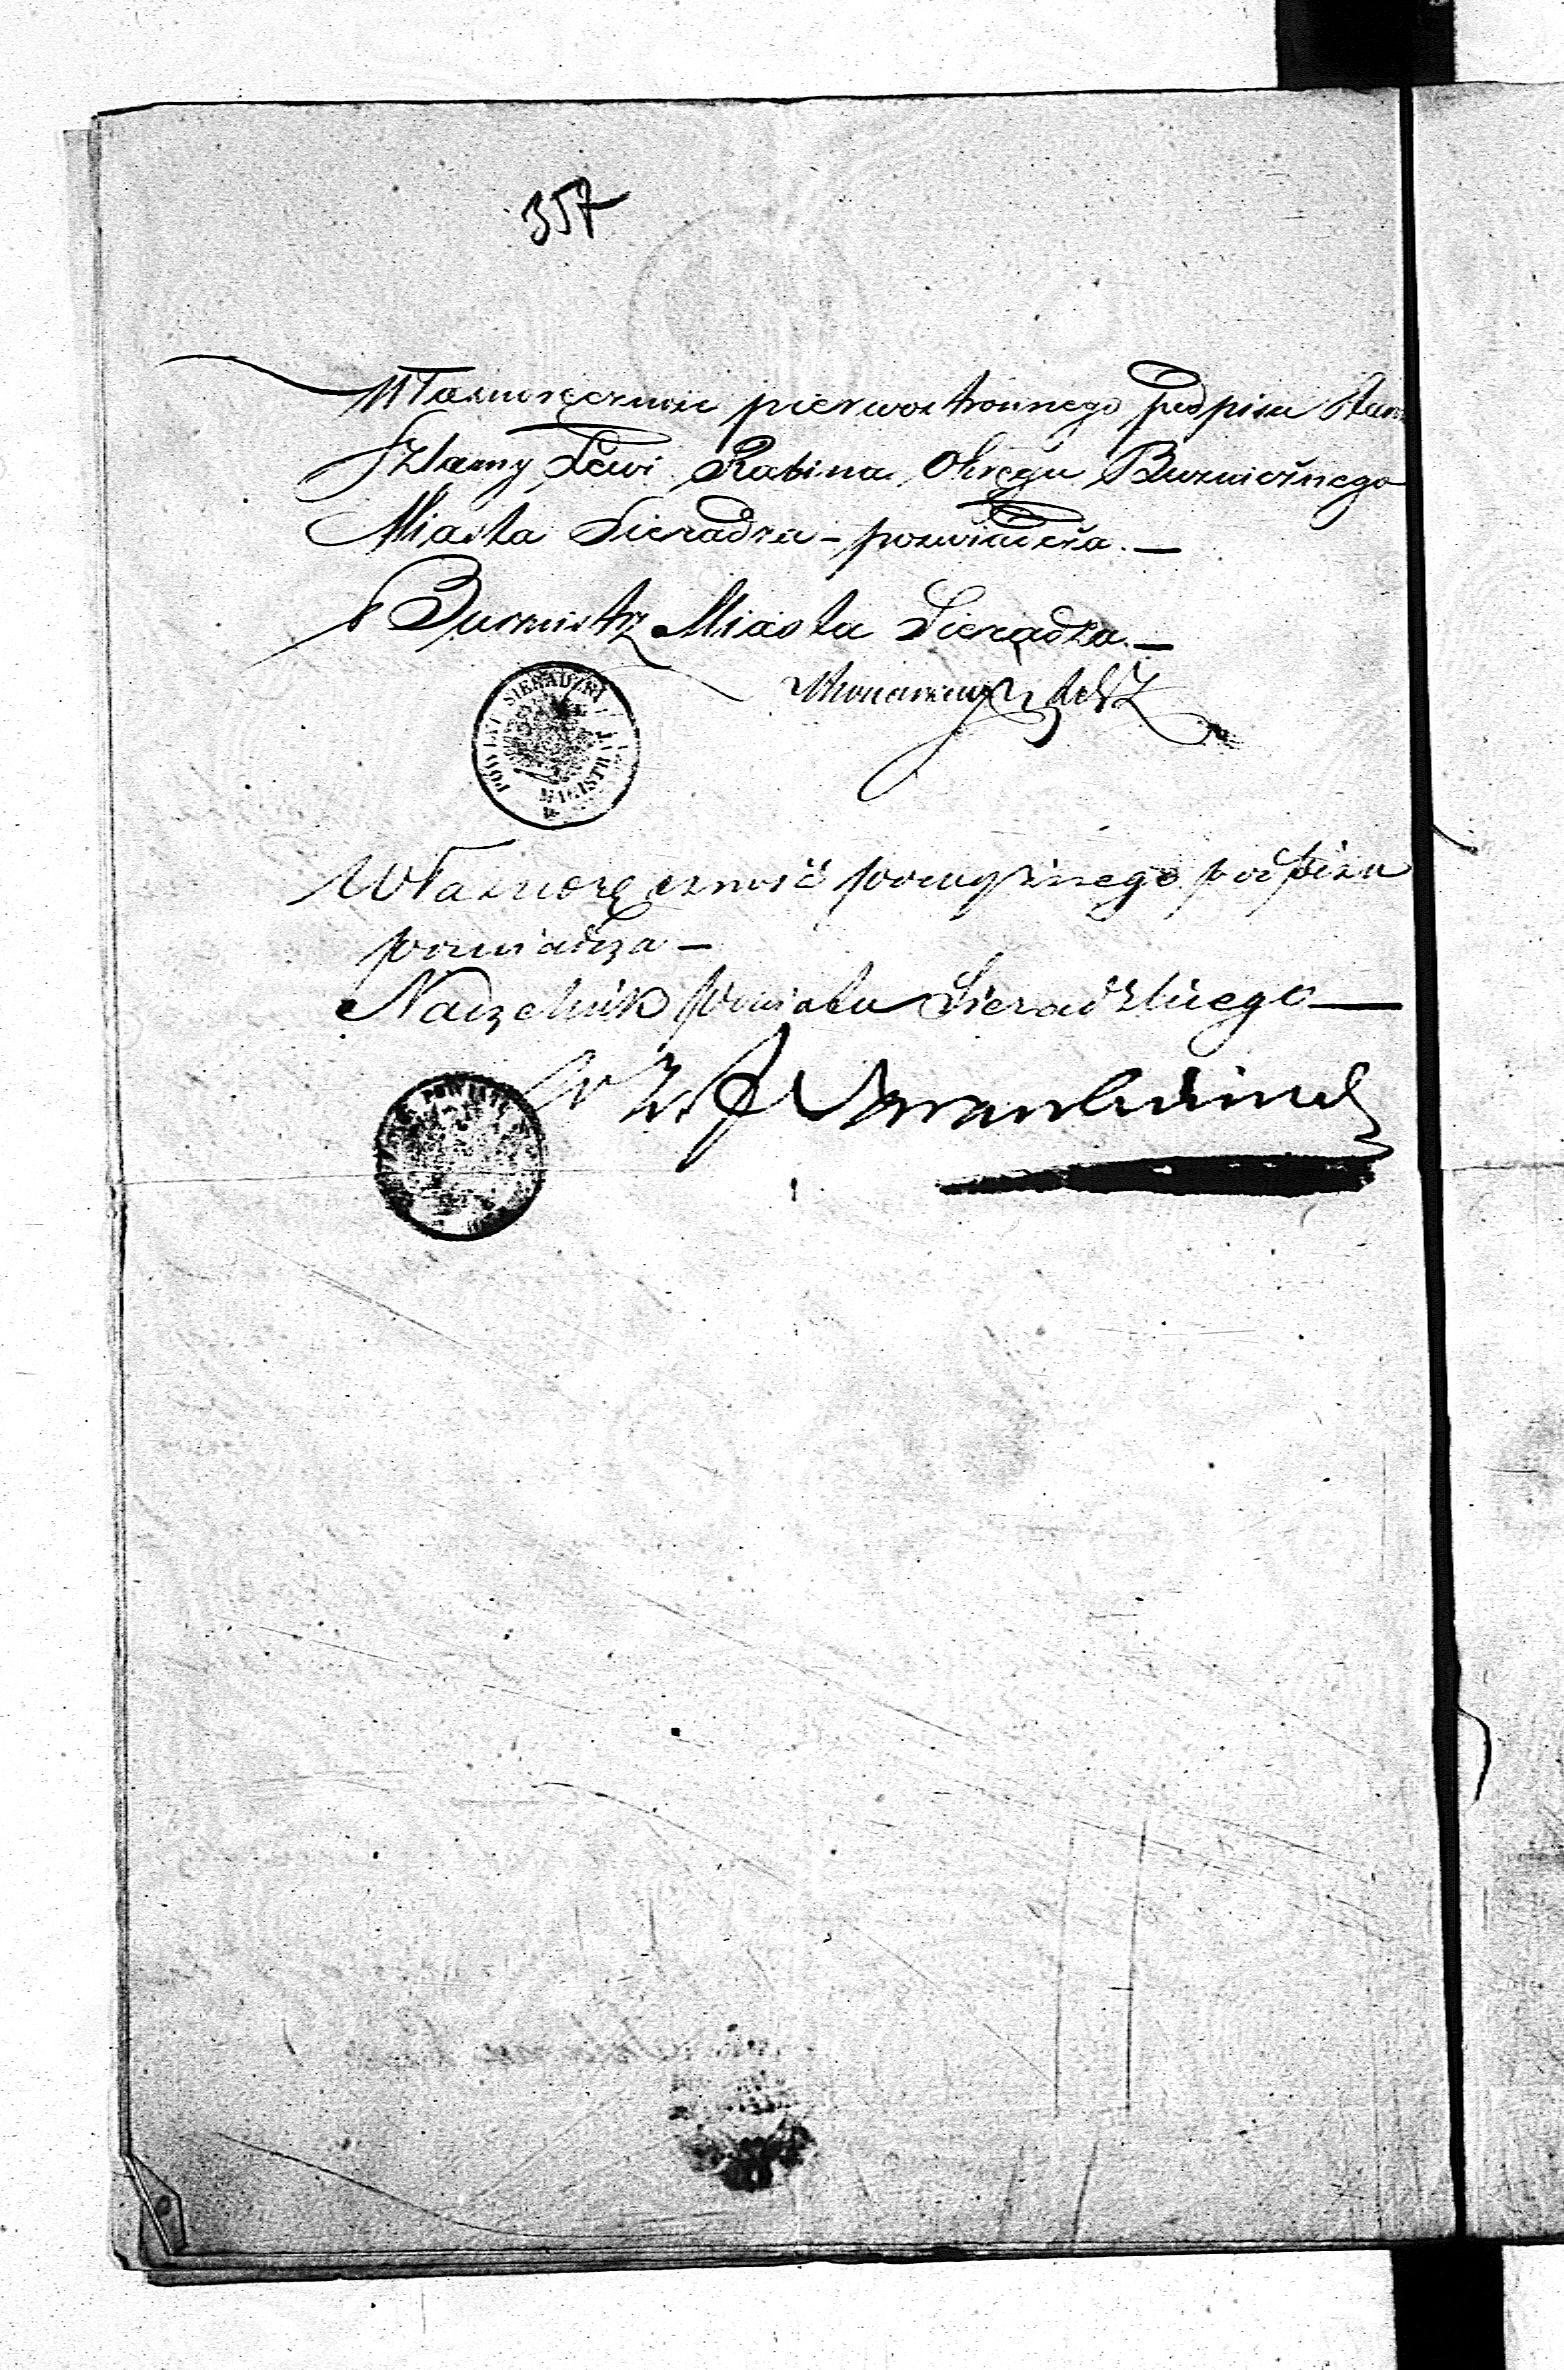 357
Własnoręczność pierwostronnego podpisu
Szlamy Lewi Rabina Okręgu Bużnicznego
Miasta Sieradza – poświadcza. –
Burmistrz Miasta Sieradza. –
POWIAT SIERADZKI
MAGISTRAT
Własnoręczność powyższego podpisu
poświadcza –
Naczelnik Powiatu Sieradzkiego –
W Z.